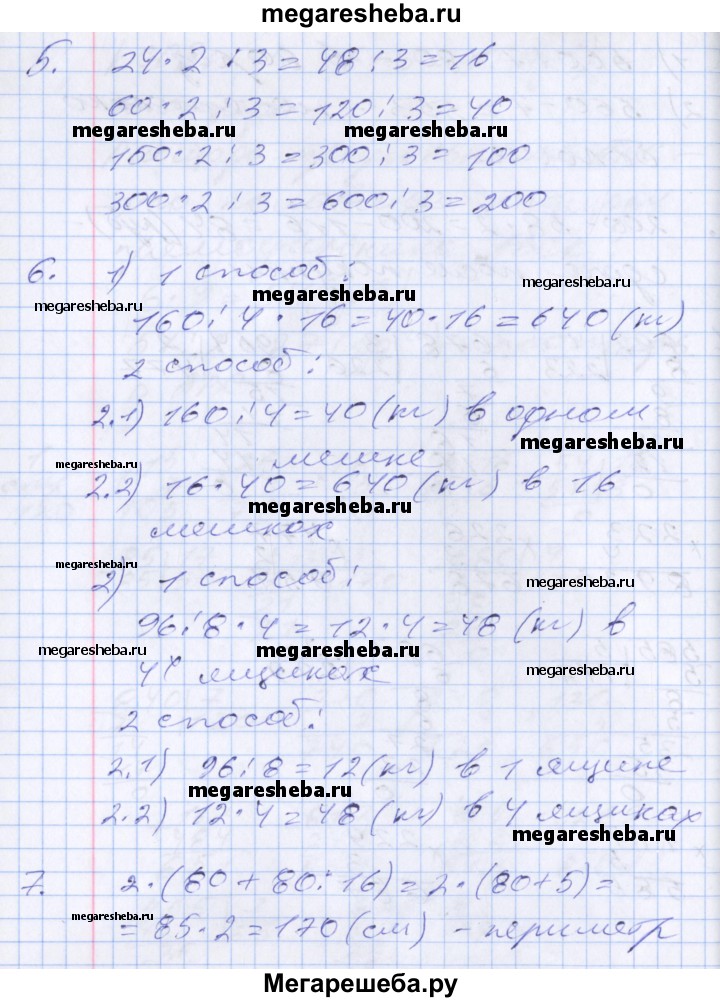 megaresheba.ru
5. 24 · 2 : 3 = 48 : 3 = 16
60 · 2 : 3 = 120 : 3 = 40
megaresheba.ru megaresheba.ru
150 · 2 : 3 = 300 : 3 = 100
300 · 2 : 3 = 600 : 3 = 200
6. 1) 1 способ:
megaresheba.ru megaresheba.ru megaresheba.ru
160 : 4 · 16 = 40 · 16 = 640 (кг)
2 способ:
2.1) 160 : 4 = 40 (кг) в одном
megaresheba.ru
мешке
megaresheba.ru
2.2) 16 · 40 = 640 (кг) в 16
megaresheba.ru
мешках
megaresheba.ru
2) 1 способ:
megaresheba.ru
96 : 8 · 4 = 12 · 4 = 48 (кг) в
megaresheba.ru megaresheba.ru
4х ящиках
megaresheba.ru
2 способ:
2.1) 96 : 8 = 12 (кг) в 1 ящике
megaresheba.ru
2.2) 12 · 4 = 48 (кг) в 4 ящиках
megaresheba.ru
7. 2 · (80 + 80 : 16) = 2 · (80 + 5) =
megaresheba.ru megaresheba.ru
= 85 · 2 = 170 (см) - периметр
Мегарешеба.ру